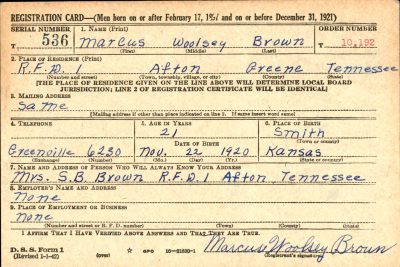 REGISTRATION CARD—(Men born on or after February 17, 1897 and on or before December 31, 1921)
SERIAL NUMBER 1. NAME (Print) ORDER NUMBER
T 536 Marcus Woolsey Brown T 10,192
(First) (Middle) (Last)
2. PLACE OF RESIDENCE (Print)
R.F.D. 1 Afton Greene Tennessee
(Number and street) (Town, township, village, or city) (County) (State)
[THE PLACE OF RESIDENCE GIVEN ON THE LINE ABOVE WILL DETERMINE LOCAL BOARD
JURISDICTION; LINE 2 OF REGISTRATION CERTIFICATE WILL BE IDENTICAL]
3. MAILING ADDRESS
Same
[Mailing address if other than place indicated on line 2. If same insert word same]
4. TELEPHONE 5. AGE IN YEARS 6. PLACE OF BIRTH
21 Smith
DATE OF BIRTH (Town or county)
Greenville 6230 Nov. 22 1920 Kansas
(Exchange) (Number) (Mo.) (Day) (Yr.) (State or country)
7. NAME AND ADDRESS OF PERSON WHO WILL ALWAYS KNOW YOUR ADDRESS
Mrs. S.B. Brown R.F.D. 1 Afton, Tennessee
8. EMPLOYER'S NAME AND ADDRESS
None
9. PLACE OF EMPLOYMENT OR BUSINESS
none
(Number and street or R. F. D. number) (Town) (County) (State)
I AFFIRM THAT I HAVE VERIFIED ABOVE ANSWERS AND THAT THEY ARE TRUE.
D. S. S. Form 1 GPO 16—21630-1 Marcus Woolsey Brown
(Revised 1-1-42) (over) (Registrant's signature)